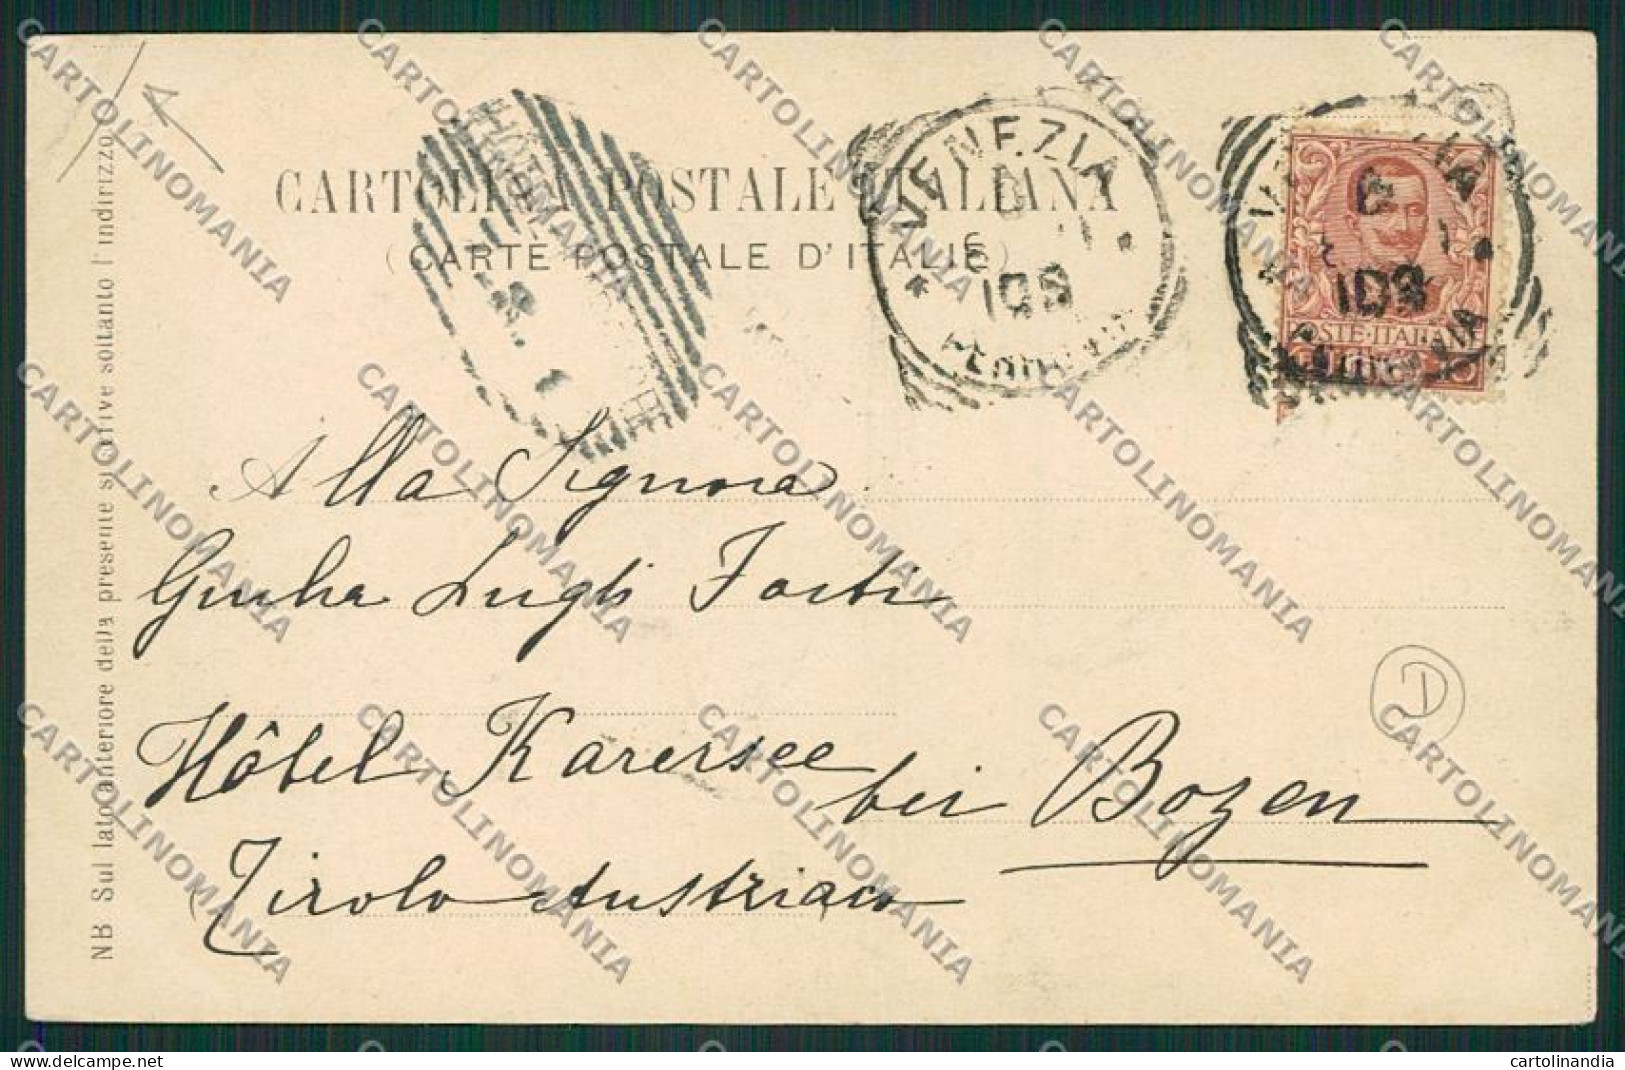 CARTOLINA POSTALE ITALIANA
(CARTE POSTALE D'ITALIE)
VENEZIA
FERROVIA
POSTE ITALIANE
Alla Signora
Giulia Lugli Forti
Hôtel Karersee bei Bozen
Tirolo Austriaco
D
NB Sul lato anteriore della presente si scrive soltanto l'indirizzo
CARTOLINOMANIA
delcampe.net
cartolinandia